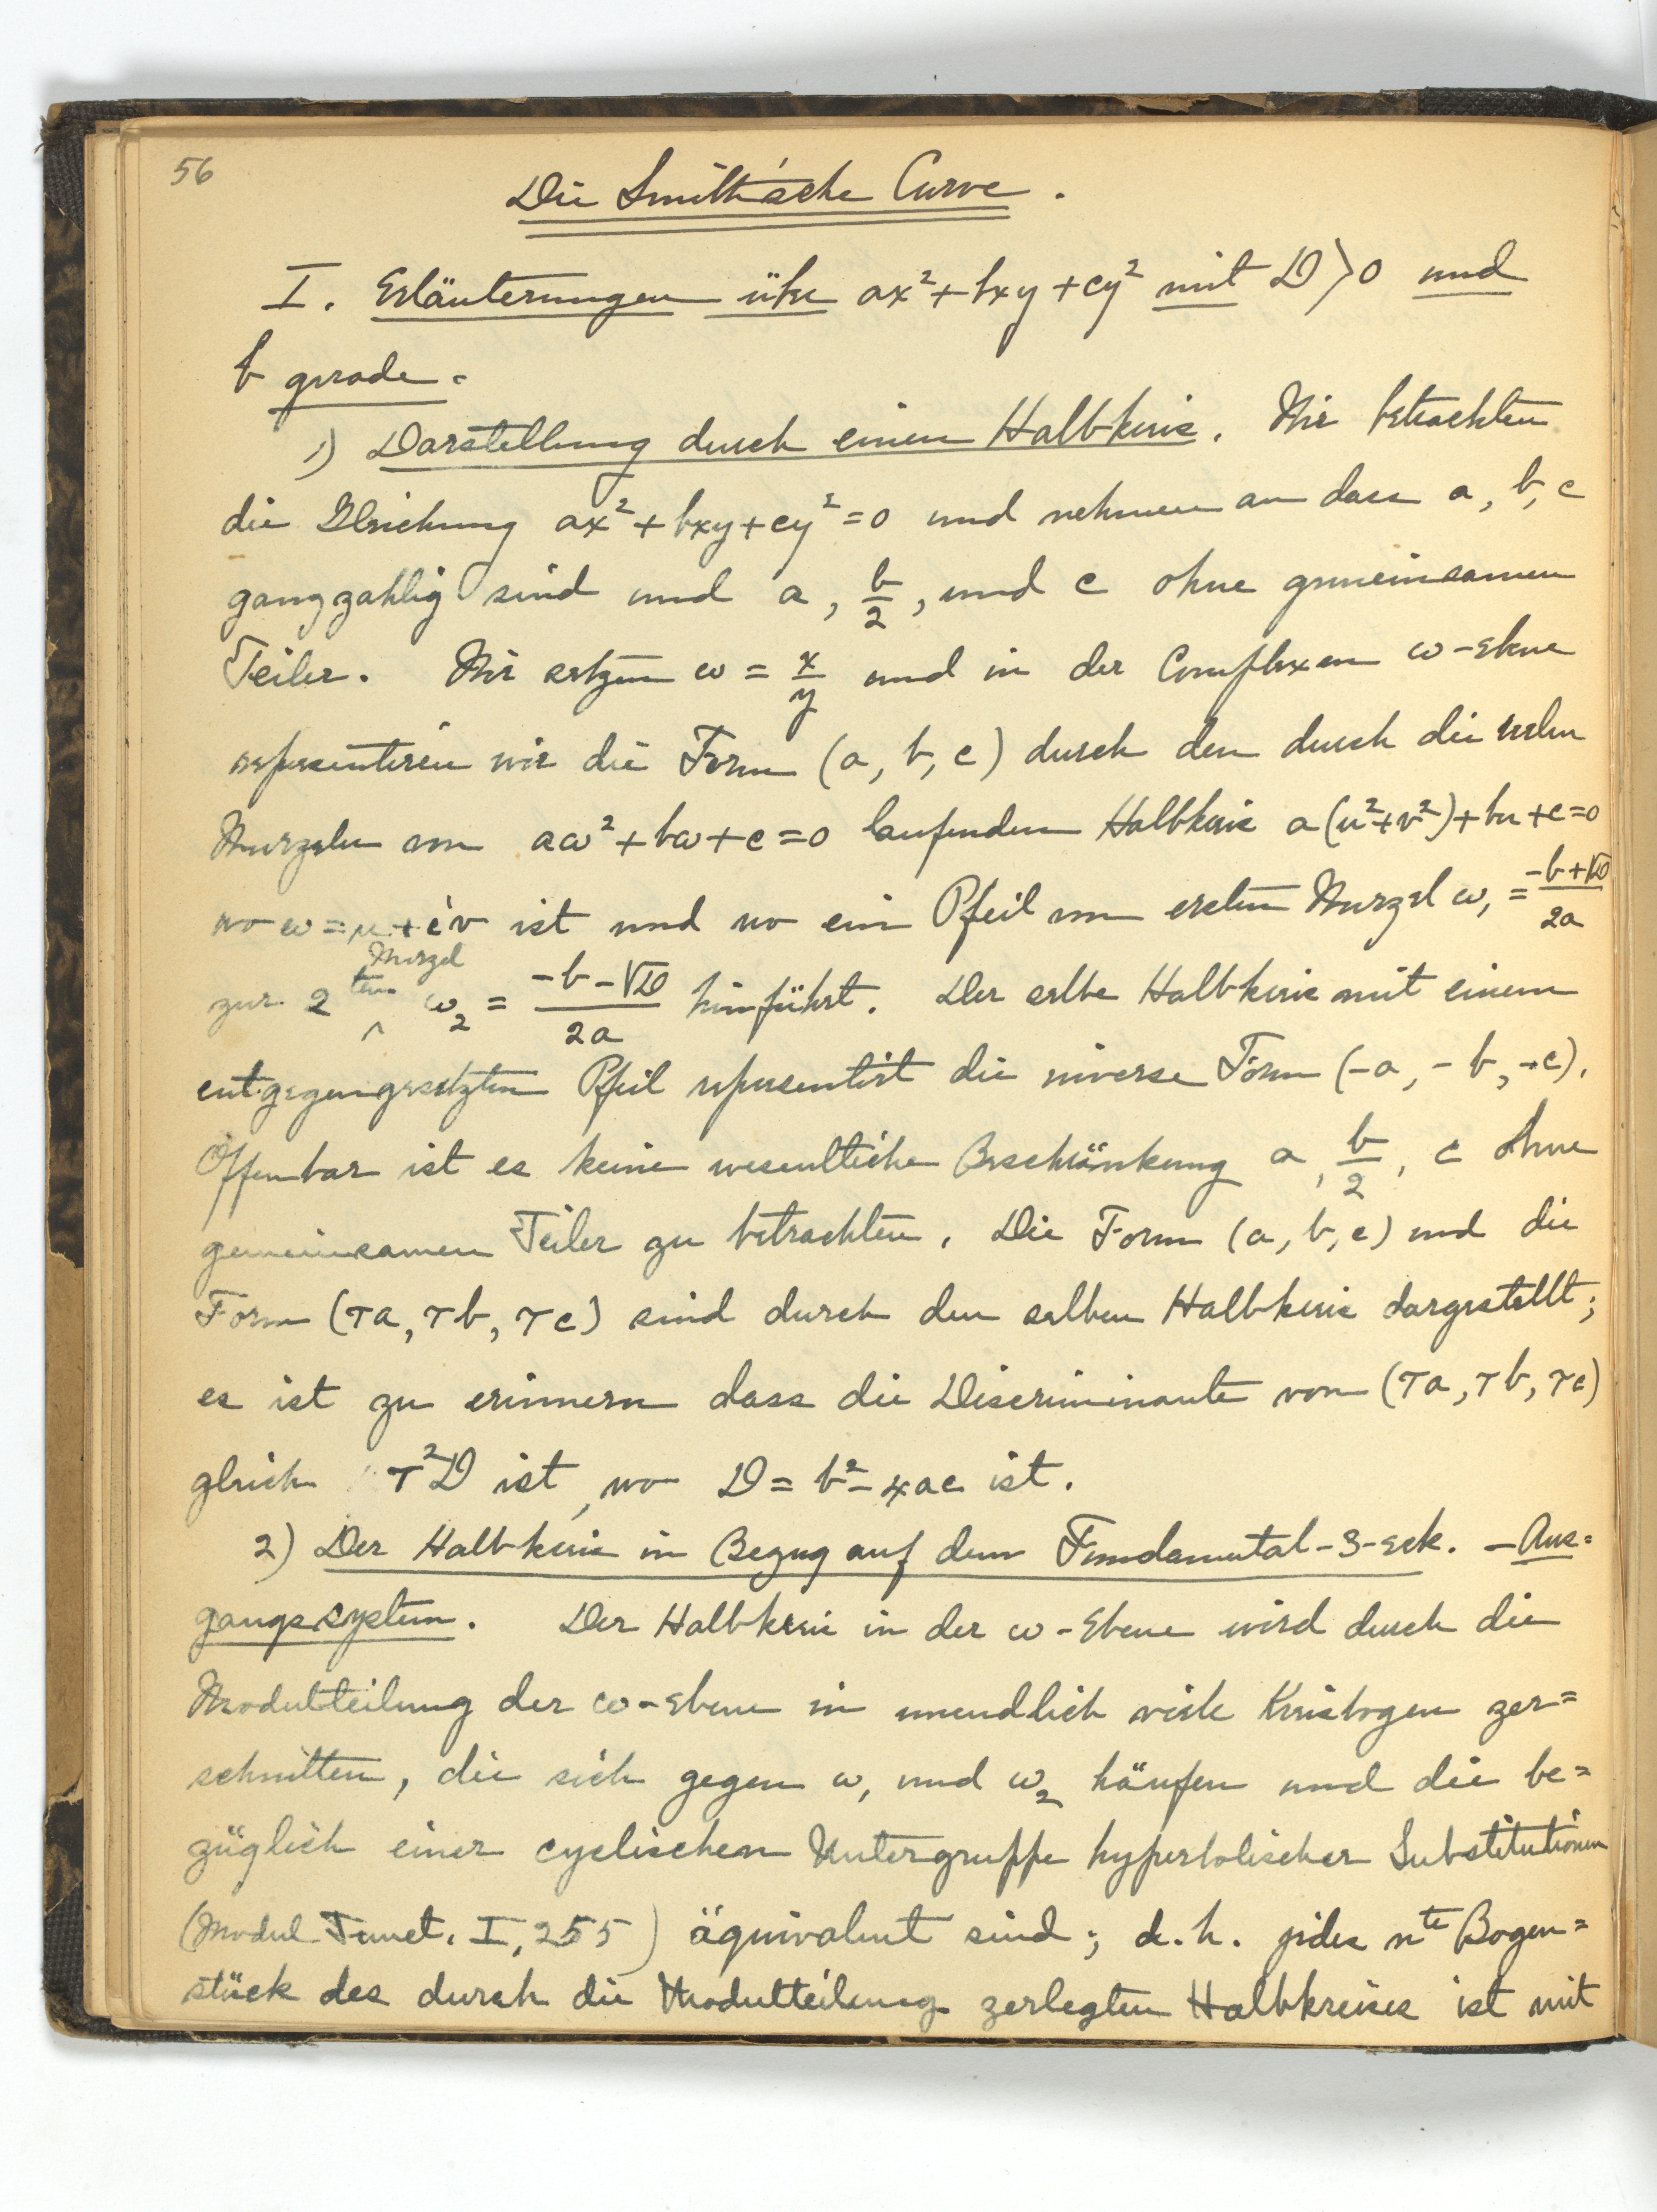 56
Die Smith'sche Curve.
I. Erläuterungen über ax²+bxy+cy² mit D>0 und
b gerade.
1) Darstellung durch einen Halbkreis. Wir betrachten
die Gleichung ax²+bxy+cy²=0 und nehmen an dass a, b, c
ganzzahlig sind und a, b/2, und c ohne gemeinsamen
Teiler. Wir setzen ω = x/y und in der Complexen ω-Ebene
representiren wir die Form (a, b, c) durch den durch die reelen
Wurzeln von aω²+bω+c=0 laufenden Halbkreis a(u²+v²)+bu+c=0
wo ω=u+iv ist und wo ein Pfeil von ersten Wurzel ω₁ = (-b+√D)/2a
zur 2ten Wurzel ω₂ = (-b-√D)/2a hinführt. Der selbe Halbkreis mit einem
entgegengesetzten Pfeil representirt die inverse Form (-a, -b, -c).
Offenbar ist es keine wesentliche Beschränkung a, b/2, c ohne
gemeinsamen Teiler zu betrachten. Die Form (a, b, c) und die
Form (τa, τb, τc) sind durch den selben Halbkreis dargestellt;
es ist zu erinnern dass die Discriminante von (τa, τb, τc)
gleich τ²D ist, wo D = b²-4ac ist.
2) Der Halbkreis in Bezug auf dem Fundamental-3-eck. — Aus=
gangssystem. Der Halbkreis in der ω-Ebene wird durch die
Modulteilung der ω-Ebene in unendlich viele Kreisbogen zer=
schnitten, die sich gegen ω₁ und ω₂ häufen und die be=
züglich einer cyclischen Untergruppe hyperbolischer Substitutionen
(Modul Funct. I, 255) äquivalent sind; d.h. jedes nte Bogen=
stück des durch die Modulteilung zerlegten Halbkreises ist mit